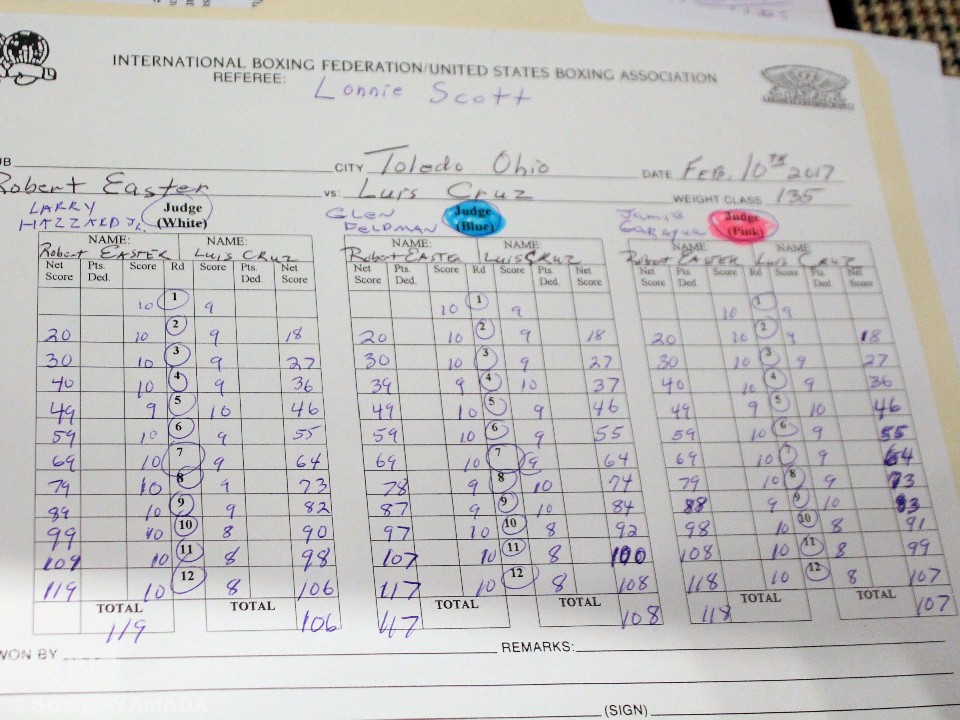 INTERNATIONAL BOXING FEDERATION/UNITED STATES BOXING ASSOCIATION
REFEREE: Lonnie Scott
CITY Toledo Ohio DATE FEB, 10TH 2017
Robert Easter vs: Luis Cruz WEIGHT CLASS 135
LARRY HAZZARD Jr. Judge (White) GLEN FELDMAN Judge (Blue) Jamie Judge (Pink)
NAME: NAME: NAME: NAME: NAME: NAME:
Robert EASTER LUIS CRUZ Robert EASTER LUIS CRUZ Robert EASTER Luis CRUZ
Net Score Pts. Ded. Score Rd Score Pts. Ded. Net Score Net Score Pts. Ded. Score Rd Score Pts. Ded. Net Score Net Score Pts. Ded. Score Rd Score Pts. Ded. Net Score
10 1 9 10 1 9 10 1 9
20 10 2 9 18 20 10 2 9 18 20 10 2 9 18
30 10 3 9 27 30 10 3 9 27 30 10 3 9 27
40 10 4 9 36 39 9 4 10 37 40 10 4 9 36
49 9 5 10 46 49 10 5 9 46 49 9 5 10 46
59 10 6 9 55 59 10 6 9 55 59 10 6 9 55
69 10 7 9 64 69 10 7 9 64 69 10 7 9 64
79 10 8 9 73 78 9 8 10 74 79 10 8 9 73
89 10 9 9 82 87 9 9 10 84 88 9 9 10 83
99 10 10 8 90 97 10 10 8 92 98 10 10 8 91
109 10 11 8 98 107 10 11 8 100 108 10 11 8 99
119 10 12 8 106 117 10 12 8 108 118 10 12 8 107
TOTAL TOTAL TOTAL TOTAL TOTAL TOTAL
119 106 117 108 118 107
WON BY REMARKS:
(SIGN)